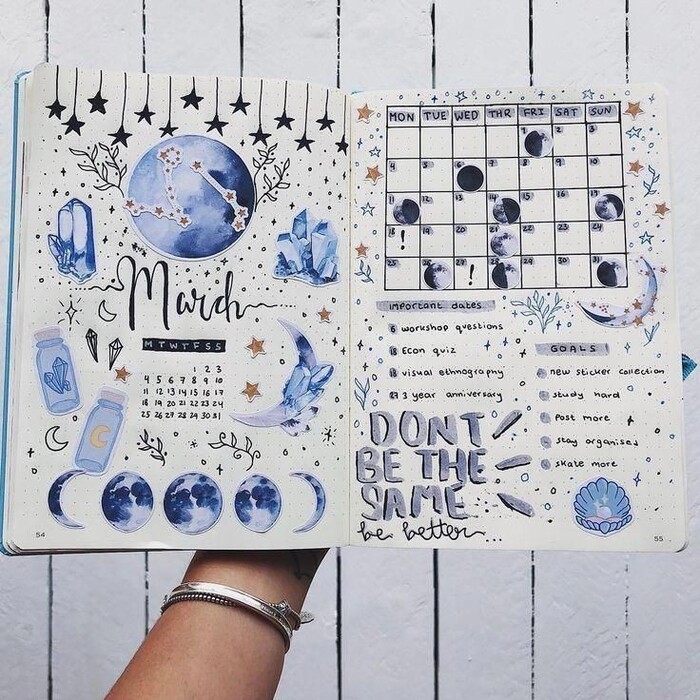 March
M T W T F S S
1 2 3
4 5 6 7 8 9 10
11 12 13 14 15 16 17
18 19 20 21 22 23 24
25 26 27 28 29 30 31
54
MON TUE WED THR FRI SAT SUN
1 2 3
4 5 6 7 8 9 10
11 12 13 14 15 16 17
18 19 20 21 22 23 24
!
25 26 27 28 29 30 31
!
important dates
6 workshop questions
18 Econ quiz
18 visual ethnography
27 3 year anniversary
GOALS
new sticker collection
study hard
post more
stay organised
skate more
DONT
BE THE
SAME
be better...
55